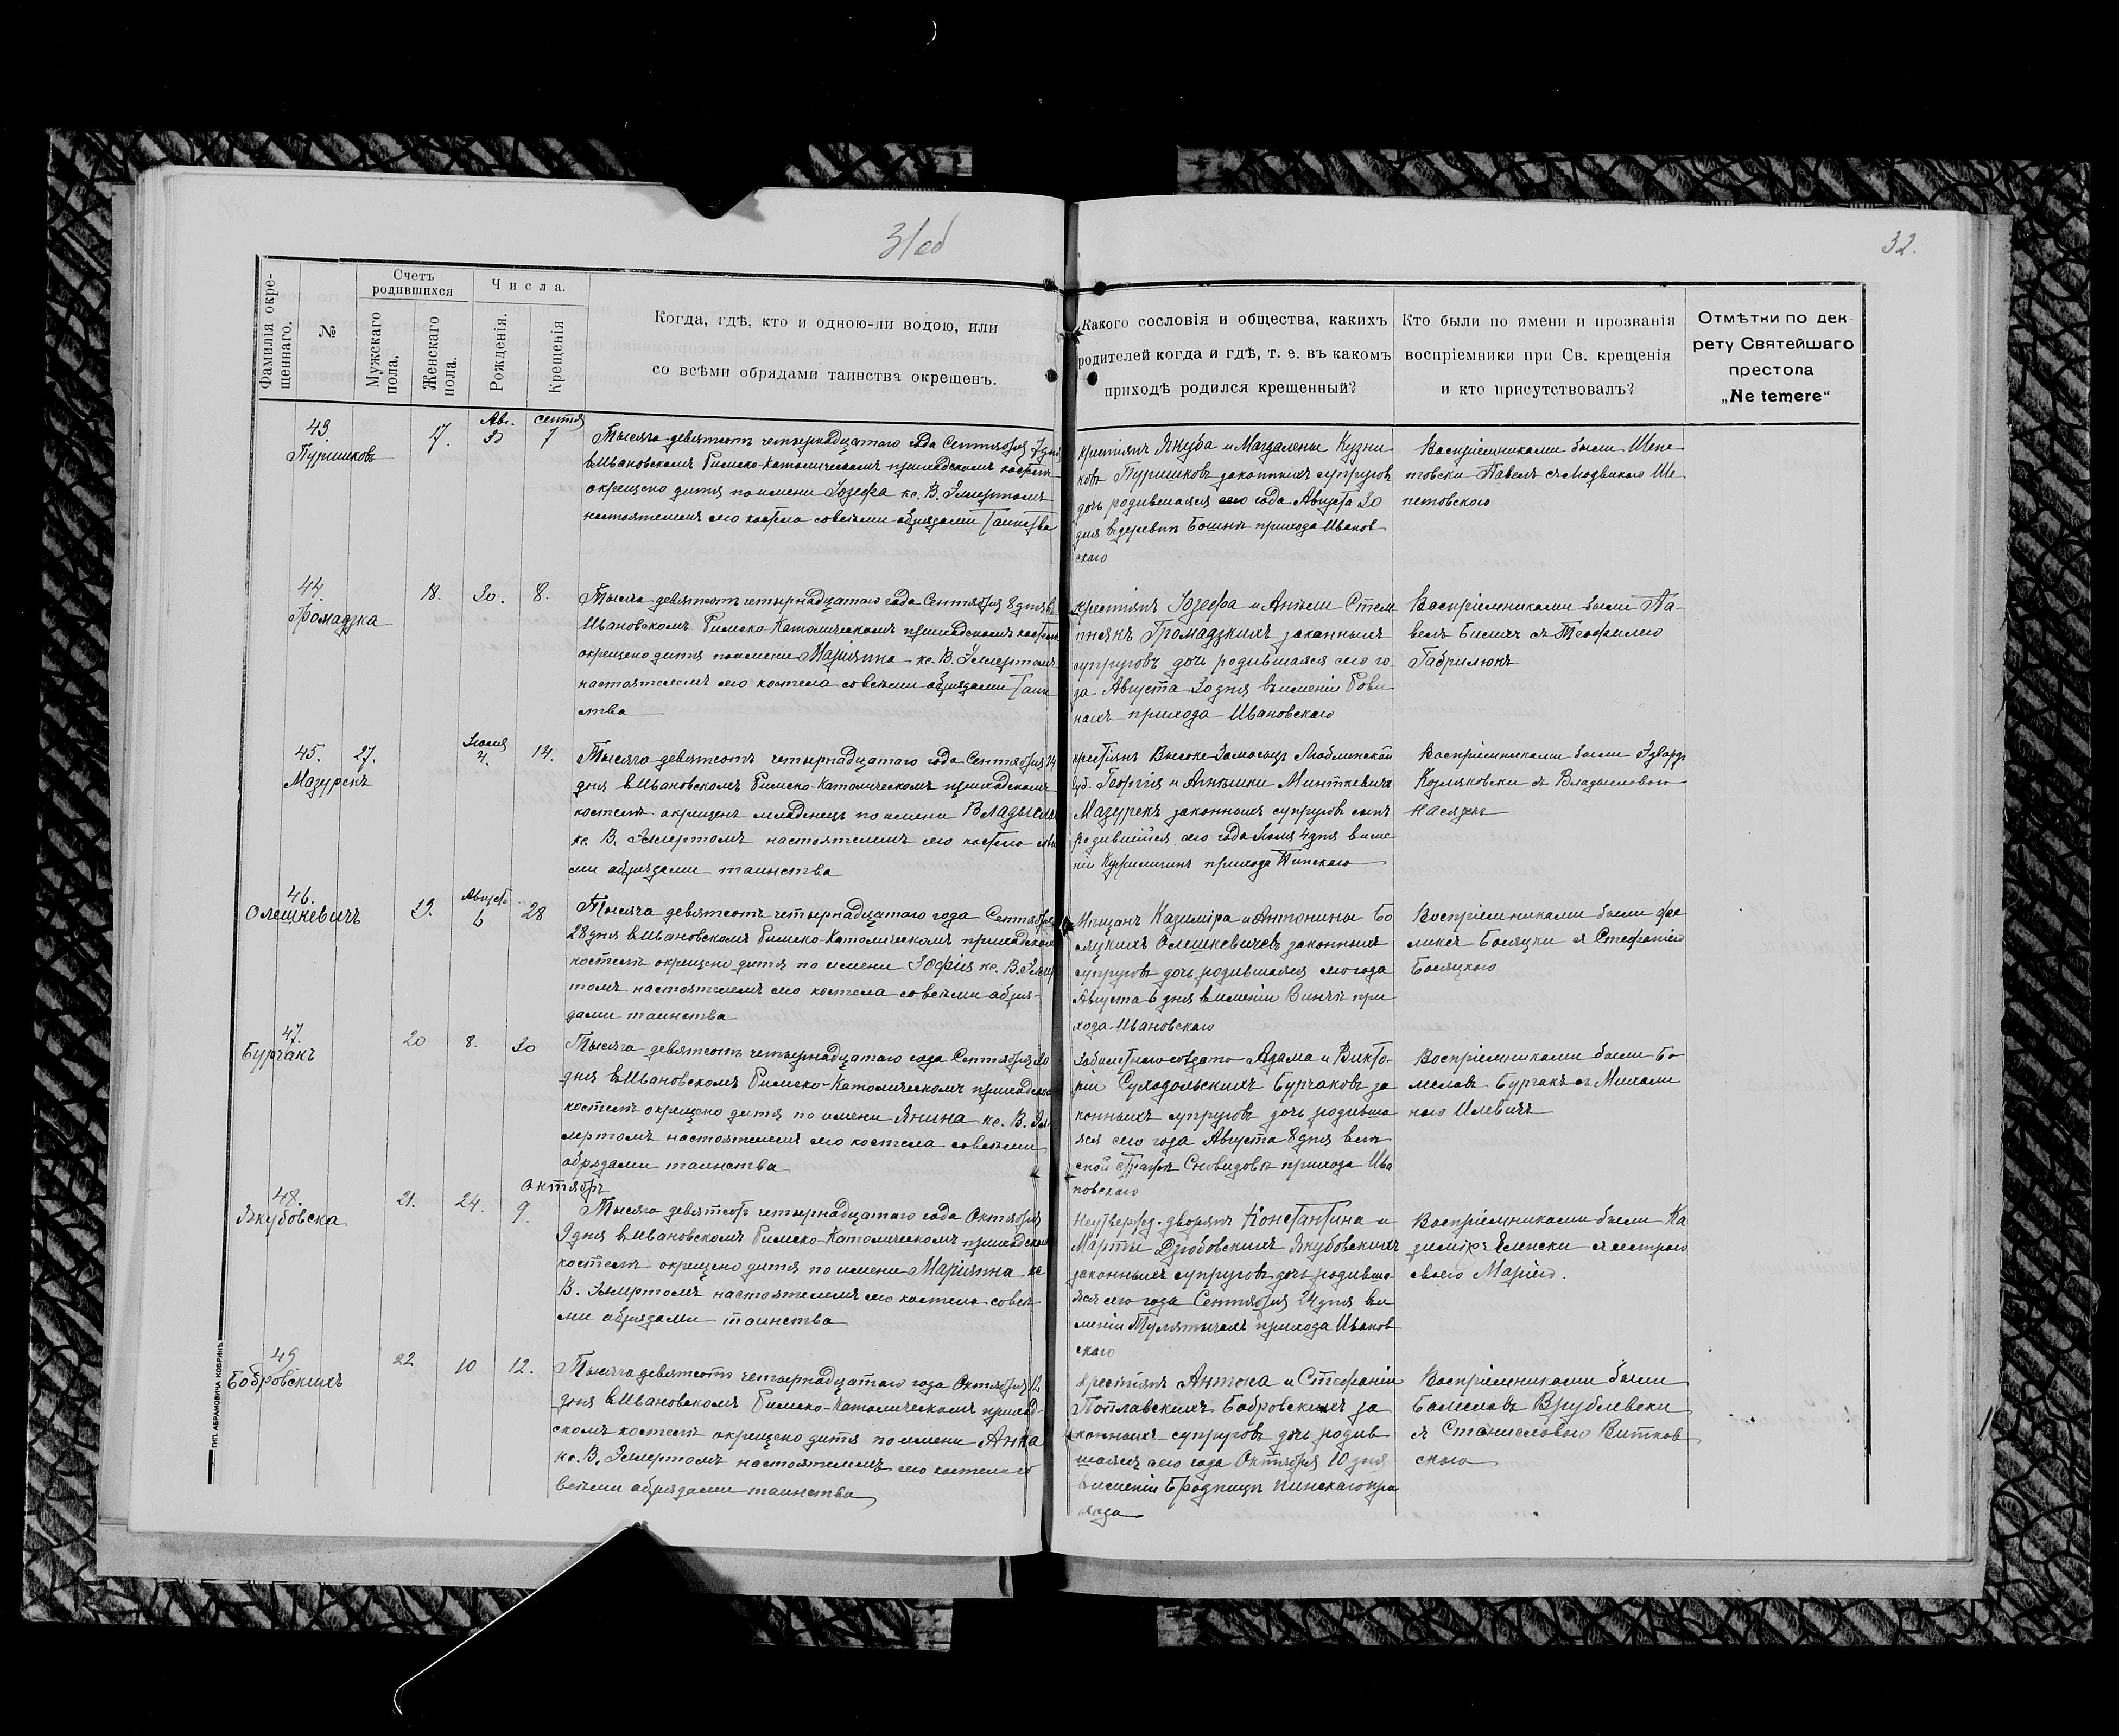 31об
32.
Фамилія окре-
щеннаго.
№
Счетъ
родившихся
Мужскаго
пола.
Женскаго
пола.
Числа.
Рожденія.
Крещенія
Когда, гдѣ, кто и одною-ли водою, или
со всѣми обрядами таинства окрещенъ.
Какого сословія и общества, какихъ
родителей когда и гдѣ, т. е. въ какомъ
приходѣ родился крещенный?
Кто были по имени и прозванія
воспріемники при Св. крещенія
и кто присутствовалъ?
Отмѣтки по дек-
рету Святейшаго
престола
„Ne temere“
43.
Пуришковъ
17.
Авг.
30
сентя
7
Тысяча девятсотъ четырнадцатаго года Сентября 7 дня
в Ивановскомъ Римско-Католическомъ приходскомъ костелѣ
окрещено дитя по имени Юзефа кс. В. Эллертомъ
настоятелемъ сего костела совсѣми обрядами Таинства
крестіянъ Якуба и Магдалены Кузни
ковъ Пуришковъ законныхъ супруговъ
дочь родившаяся сего года Августа 30
дня в деревнѣ прихода Иванов
скаго
Воспріемниками были Шепе
товски Павелъ съ Ше
петовского
44.
Громадзка
18.
30.
8.
Тысяча девятсотъ четырнадцатаго года Сентября 8 дня в
Ивановскомъ Римско-Католическомъ приходскомъ костелѣ
окрещено дитя по имени Маріянна кс. В. Эллертомъ
настоятелемъ сего костела совсѣми обрядами Таин
ства
крестіянъ Юзефа и Анели Стем
пнякъ Громадзкихъ законныхъ
супруговъ дочь родившаяся сего го-
да Августа 30 дня въ имѣніи Рови
нахъ прихода Ивановскаго
Воспріемниками были Па-
велъ съ Теофилею
Габрилюкъ
45.
27.
Мазурекъ
Іюля
4.
14.
Тысяча девятсотъ четырнадцатаго года Сентября 14
дня в Ивановскомъ Римско-Католическомъ приходскомъ
костелѣ окрещенъ младенецъ по имени
кс. В. Эллертомъ настоятелемъ сего костела
ми обрядами таинства
крестіянъ Высоке-Замосьцъ Люблинской
губ. Георгія и Агнешки Минткевичъ
Мазурекъ законныхъ супруговъ сынъ
родившійся сего года Іюля 4 дня в име
ніи прихода Пинскаго
Воспріемниками были Эдвардъ
Козляковски съ Владыславою
46.
Олешкевичъ
19.
Августа
6
28
Тысяча девятсотъ четырнадцатаго года Сентября
28 дня в Ивановскомъ Римско-Католическомъ приходскомъ
костелѣ окрещено дитя по имени Зофія кс. В. Эллер
томъ настоятелемъ сего костела совсѣми обря-
дами таинства
Мѣщанъ Казиміра и Антонины Бо
ляцкихъ Олешкевичевъ законныхъ
супруговъ дочь родившаяся сего года
Августа 6 дня в имѣніи при
хода Ивановскаго
Воспріемниками были Фе
ликсъ съ Стефаніею
47.
Бурчакъ
20
8.
30
Тысяча девятсотъ четырнадцатаго года Сентября 30
дня в Ивановскомъ Римско-Католическомъ приходскомъ
костелѣ окрещено дитя по имени Янина кс. В. Эл
лертомъ настоятелемъ сего костела совсѣми
обрядами таинства
Адама и Викто-
ріи Суходольскихъ Бурчаковъ за
конныхъ супруговъ дочь родивша
яся сего года Августа 8 дня влѣ
сной Сновидовѣ прихода Ива
новскаго
Воспріемниками были Бо
леславъ Бурчакъ съ Михали
ною Илевичъ
48.
Якубовска
21.
24.
Октябрь
9.
Тысяча девятсотъ четырнадцатаго года Октября
9 дня в Ивановскомъ Римско-Католическомъ приходскомъ
костелѣ окрещено дитя по имени Маріянна кс
В. Эллертомъ настоятелемъ сего костела совсѣ
ми обрядами таинства
Неутвержд. дворянъ Константина и
Марты Дробовскихъ Якубовскихъ
законныхъ супруговъ дочь родивша-
яся сего года Сентября 24 дня в и
мѣніи прихода Иванов
скаго
Воспріемниками были Ка
зиміръ Яленски съ сестрою
своею Маріею.
49
Бобровскихъ
22
10
12.
Тысяча девятсотъ четырнадцатаго года Октября 12
дня в Ивановскомъ Римско-Католическомъ приход-
скомъ костелѣ окрещено дитя по имени Анна
кс. В. Эллертомъ настоятелемъ сего костела со
всѣми обрядами таинства
крестіянъ Антона и Стефаніи
Поплавскихъ Бобровскихъ за
конныхъ супруговъ дочь родив
шаяся сего года Октября 10 дня
в имѣніи Бродница Пинскаго при
хода
Воспріемниками были
Болеславъ Врублевски
съ Станиславою Витков
скою
ТИП. АБРАМОВИЧА КОБРИНЪ.